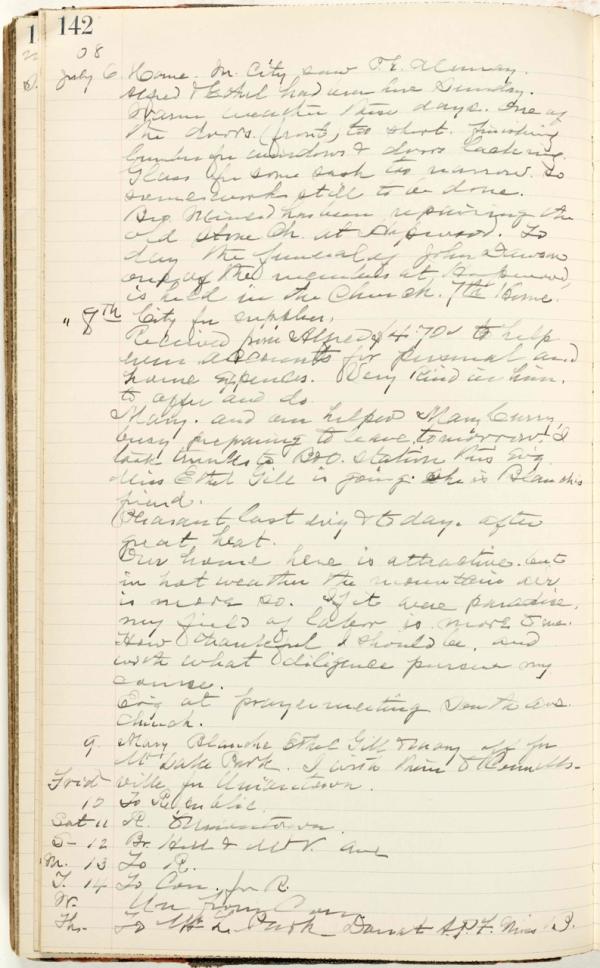 142
08
July 6 Home. In City saw Th.
Alfred & Ethel had been here Sunday.
Warm weather these days. One of
the doors (front) too short. finishing
lumber for windows & doors lacking.
Glass for some sash too narrow. So
some work still to be done.
Bro. has been repairing the
old stone Ch. at Hopwood. To
day the funeral of John Dawson
one of the members at Hopwood,
is held in the Church. 7th Home.
" 8th City for supplies.
Received from Alfred $14.70 to help
even accounts for personal and
home expenses. Very kind in him.
to offer and do
Mary. and our helper Mary Curry
busy preparing to leave tomorrow. I
took trunks to B&O. station this Evg.
Miss Ethel Gill is going. She is Blanch's
friend.
Pleasant last evig & to day. after
great heat.
Our home here is attractive. but
in hot weather the mountain air
is more so. If it were paradise,
my field of labor is more to me.
How thankful I should be, and
with what diligence pursue my
course.
Evig at prayermeeting South Ave.
Church.
9. Mary Blanche Ethel Gill & Mary off for
Mt Lake Park. I with them to Connells-
Frid ville, for Uniontown.
10 To Republic.
Sat 11 R. Uniontown.
S- 12 Br. Hill & Ave
M. 13 To R.
T. 14 To Con. for R.
W. Un from Con
Ths. To Mt L. Park